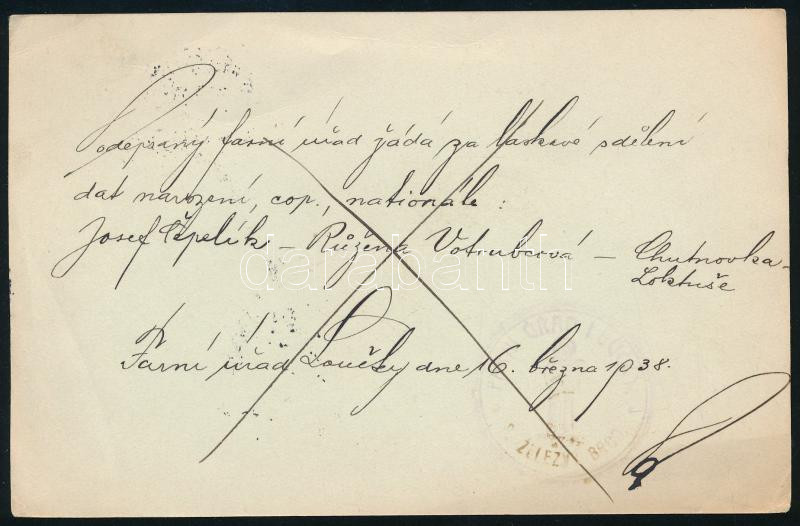 Podepsaný farní úřad žádá za laskavé sdělení
dat narození, cop., nationále :
Josef Čepelík – Růžena Votrubcová – Chutnovka-
Loktuše
darabanth
Farní úřad Loučky dne 16. března 1938.
ŽELEZN BROD